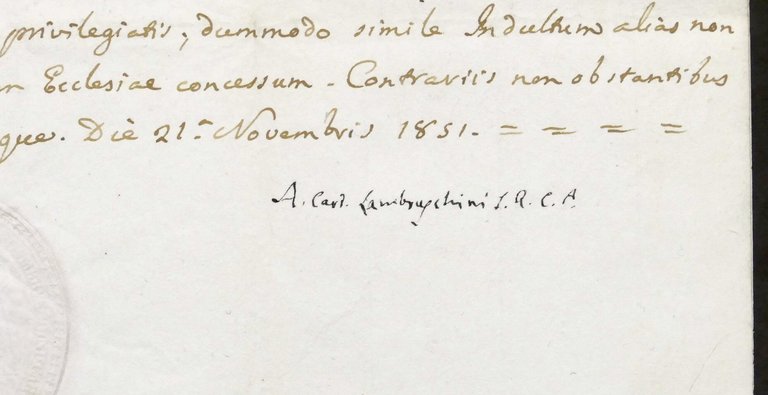 privilegiatis, dummodo simile Indultum alias non
Ecclesiae concessum. Contrariis non obstantibus
que. Die 21.a Novembris 1851. = = = =
A. Card. Lambruschini